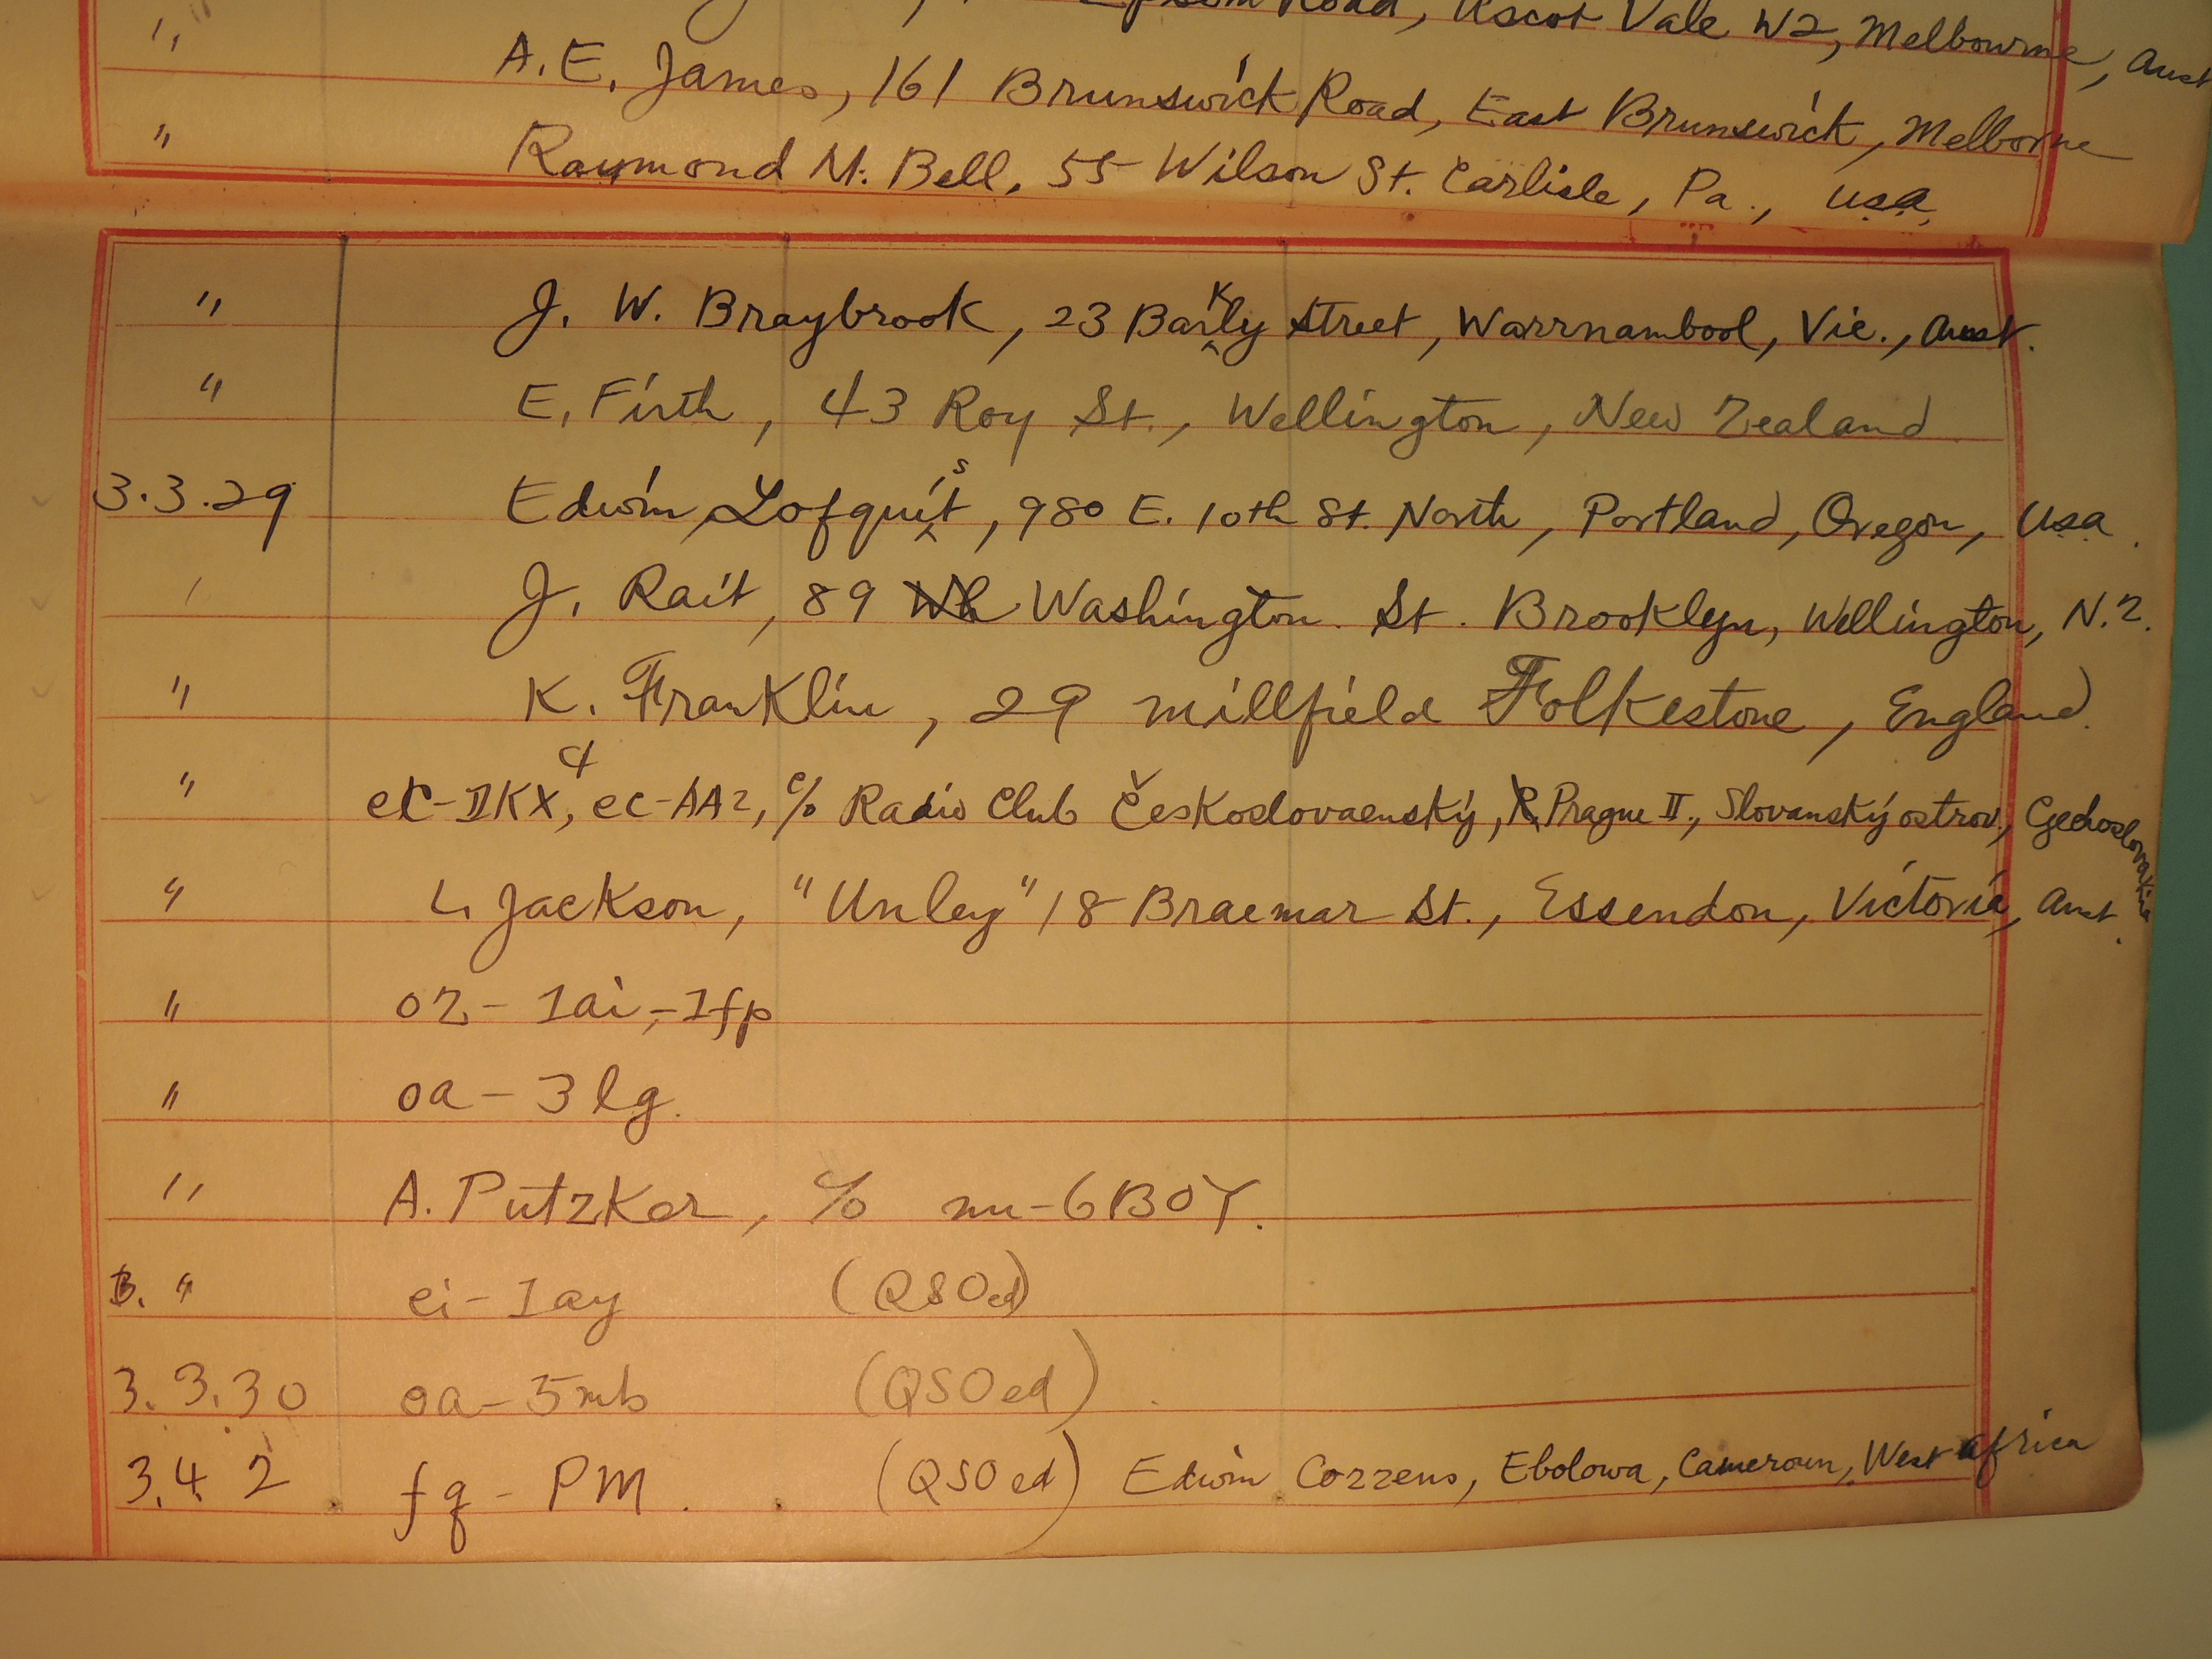 Road, Ascot Vale W2, Melbourne, Aust
" A. E. James, 161 Brunswick Road, East Brunswick, Melborne
" Raymond M. Bell, 55 Wilson St. Carlisle, Pa., U.S.A.
" J. W. Braybrook, 23 Barkly Street, Warrnambool, Vic., Aust.
" E. Firth, 43 Roy St., Wellington, New Zealand
3.3.29 Edwin Lofquist, 980 E. 10th St. North, Portland, Oregon, U.S.A.
J. Rait, 89 Washington St. Brooklyn, Wellington, N.Z.
" K. Franklin, 29 Millfield Folkestone, England.
" ec-AA2, c/o Radio Club Českoslovaenský, Prague II., Slovanský ostrov,
" L. Jackson, "Unley" 18 Braemar St., Essendon, Victoria, Aust.
" oz - 1ai, - 1fp
" oa - 3lg.
" A. Putzker, c/o nu-6BOY.
" ei - 1ay (QSOed)
3.3.30 oa - 5mb (QSOed)
3.4.2 fq - PM. (QSOed) Edwin Cozzens, Ebolowa, Cameroun, West Africa